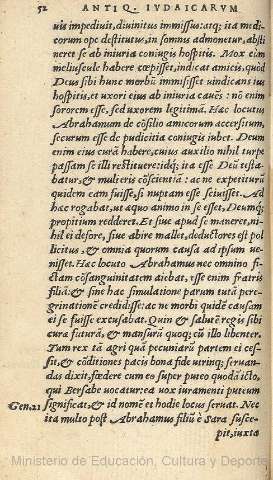 52 ANTIQ. IVDAICARVM
uis impediuit, diuinitus immissus: atq; ita medi-
corum ope destitutus, in somnis admonetur, absti
neret se ab iniuria coniugis hospitis. Mox cùm
meliuscule habere cœpisset, indicat amicis, quòd
Deus sibi hunc morbũ immisisset uindicans ius
hospitis, et uxori eius ab iniuria cauẽs: nõ enim
sororem esse, sed uxorem legitimã. Hæc locutus
Abrahamum de cõsilio amicorum accersitum,
securum esse de pudicitia coniugis iubet. Deum
enim eius curã habere, cuius auxilio nihil turpe
passam se illi restituere: idq; ita esse Deũ testa-
batur, & mulieris cõscientiã: ac ne expetiturũ
quidem eam fuisse, si nuptam esse sciuisset. Ad
hæc rogabat, ut æquo animo in se esset, Deumq;
propitium redderet. Et siue apud se maneret, ni-
hil ei defore, siue abire mallet, deductores est pol
licitus, & omnia quorum causa ad ipsum ue-
nisset. Hæc locuto Abrahamus nec omnino fi-
ctam cõsanguinitatem aiebat, esse enim fratris
filiã: & sine hac simulatione parum tutã pere-
grinationẽ credidisse: ac ne morbi quidẽ causam
ei se fuisse excusabat. Quin & salutẽ regis sibi
curæ futurã, & mansurũ quoq; cũ illo libenter.
Tum rex tã agri quã pecuniarũ partem ei ces-
sit, & cõditiones pacis bona fide utrinq; seruan-
das dixit, fœdere cum eo super puteo quodã icto,
qui Bersabe uocatur: ea uox iuramenti puteum
Gen. 21 significat, & id nomẽ et hodie locus seruat. Nec
ita multo pòst Abrahamus filiũ è Sara susce-
pit, iuxta
Ministerio de Educación, Cultura y Deporte